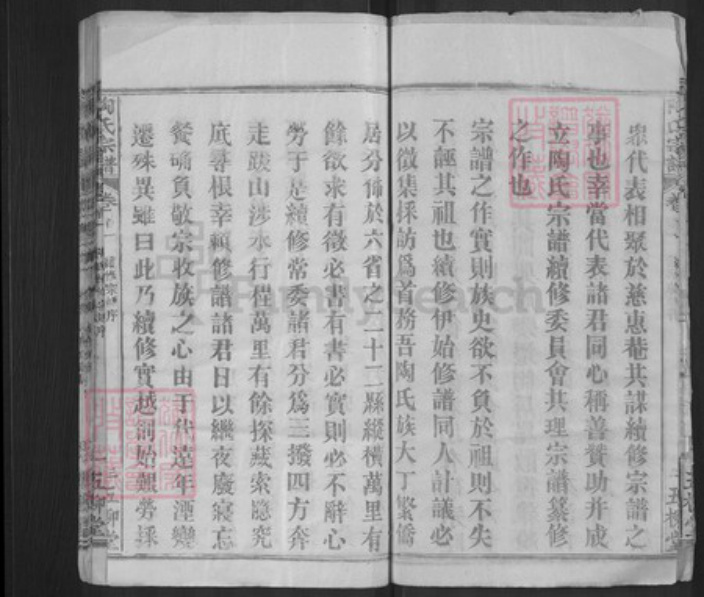 眾代表相聚於慈惠菴共謀續修宗譜之
事也幸當代表諸君同心稱善贊助并成
立陶氏宗譜續修委員會共理宗譜纂修
之作也
宗譜之作實則族史欲不負於祖則不失
不誣其祖也續修伊始修譜同人計議必
以徵集採訪爲首務吾陶氏族大丁繁僑
居分佈於六省之二十二縣縱橫萬里有
餘欲求有徵必書有書必實則必不辭心
勞于是續修常委諸君分爲三撥四方奔
走跋山涉水行程萬里有餘探藏索隱究
底尋根幸賴修譜諸君日以繼夜廢寢忘
餐確負敬宗收族之心由于代遠年湮變
遷殊異雖曰此乃續修實越創始艱勞採
陶氏宗譜
卷首
五柳堂